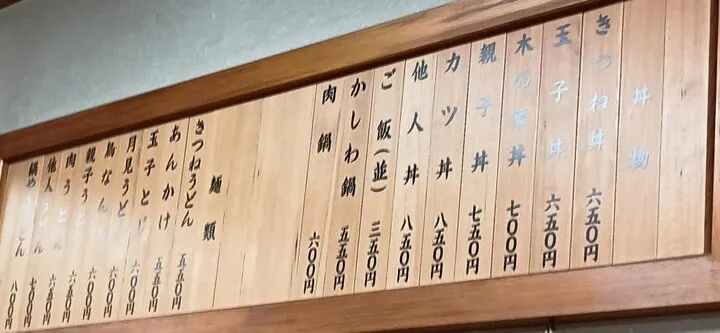 丼物
きつね丼 六五〇円
玉子丼 六五〇円
木の葉丼 七〇〇円
親子丼 七五〇円
カツ丼 八五〇円
他人丼 八五〇円
ご飯(並) 三五〇円
かしわ鍋 五五〇円
肉鍋 六〇〇円
麺類
きつねうどん 五五〇円
あんかけ 五五〇円
玉子とじ 六〇〇円
月見うどん 六〇〇円
鳥なん 六〇〇円
親子うどん 六五〇円
肉うどん 六五〇円
他人うどん 七〇〇円
鍋やきうどん 八〇〇円